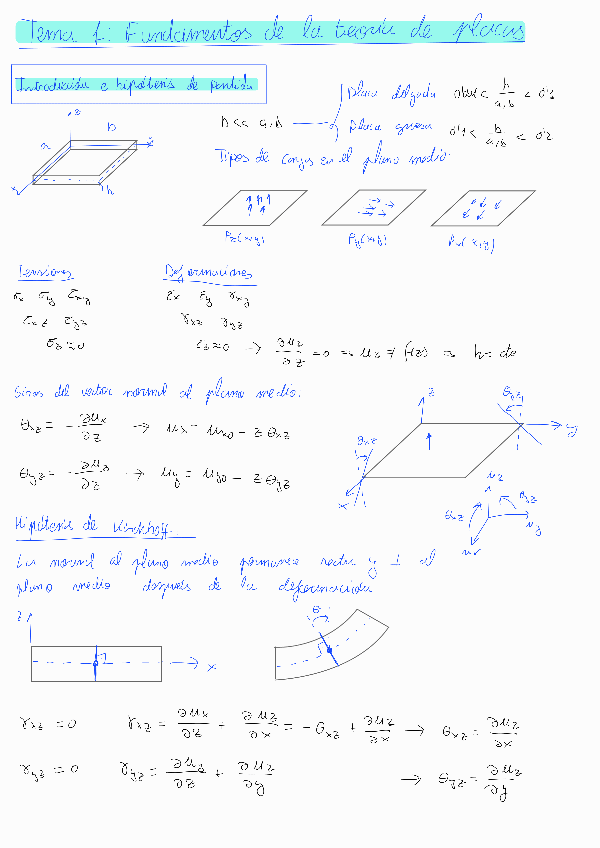 Tema 1: Fundamentos de la teoría de placas
Introducción e hipótesis de partida
z
b
a
x
h
h << a,b
placa delgada
< h/a,b < 0'1
placa gruesa 0'1 < h/a,b < 0'2
Tipos de cargas en el plano medio:
Pz(x,y)
Py(x,y)
Px(x,y)
Tensiones
Deformaciones
σx σy τxy
εx εy γxy
τxz τyz
γxz γyz
σz≈0
εz≈0 → ∂uz/∂z = 0 ⇒ uz ≠ f(z) ⇒ h = cte
Giros del vector normal al plano medio.
θxz = - ∂ux/∂z → ux = uxo - z θxz
θyz = - ∂uy/∂z → uy = uyo - z θyz
z
θyz
y
θxz
x
uz
θyz
θxz
uy
ux
Hipótesis de Kirchhoff.
La normal al plano medio permanece recta y ⊥ al
plano medio después de la deformación
z
x
θ
γxz = 0
γxz = ∂ux/∂z + ∂uz/∂x = - θxz + ∂uz/∂x → θxz = ∂uz/∂x
γyz = 0
γyz = ∂uy/∂z + ∂uz/∂y → θyz = ∂uz/∂y